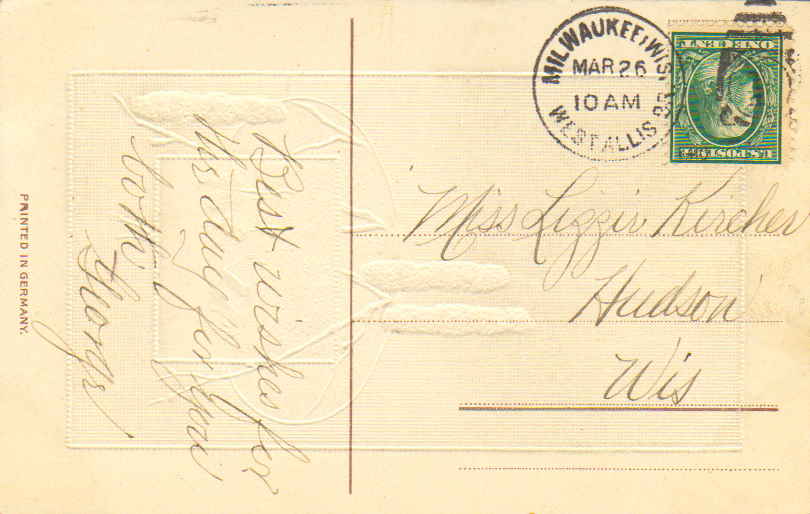 Best wishes for
the day for you
both
George
PRINTED IN GERMANY.
MILWAUKEE, WIS.
MAR 26
10 AM
WEST ALLIS
U.S. POSTAGE
ONE CENT
Miss Lizzie Kircher
Hudson
Wis